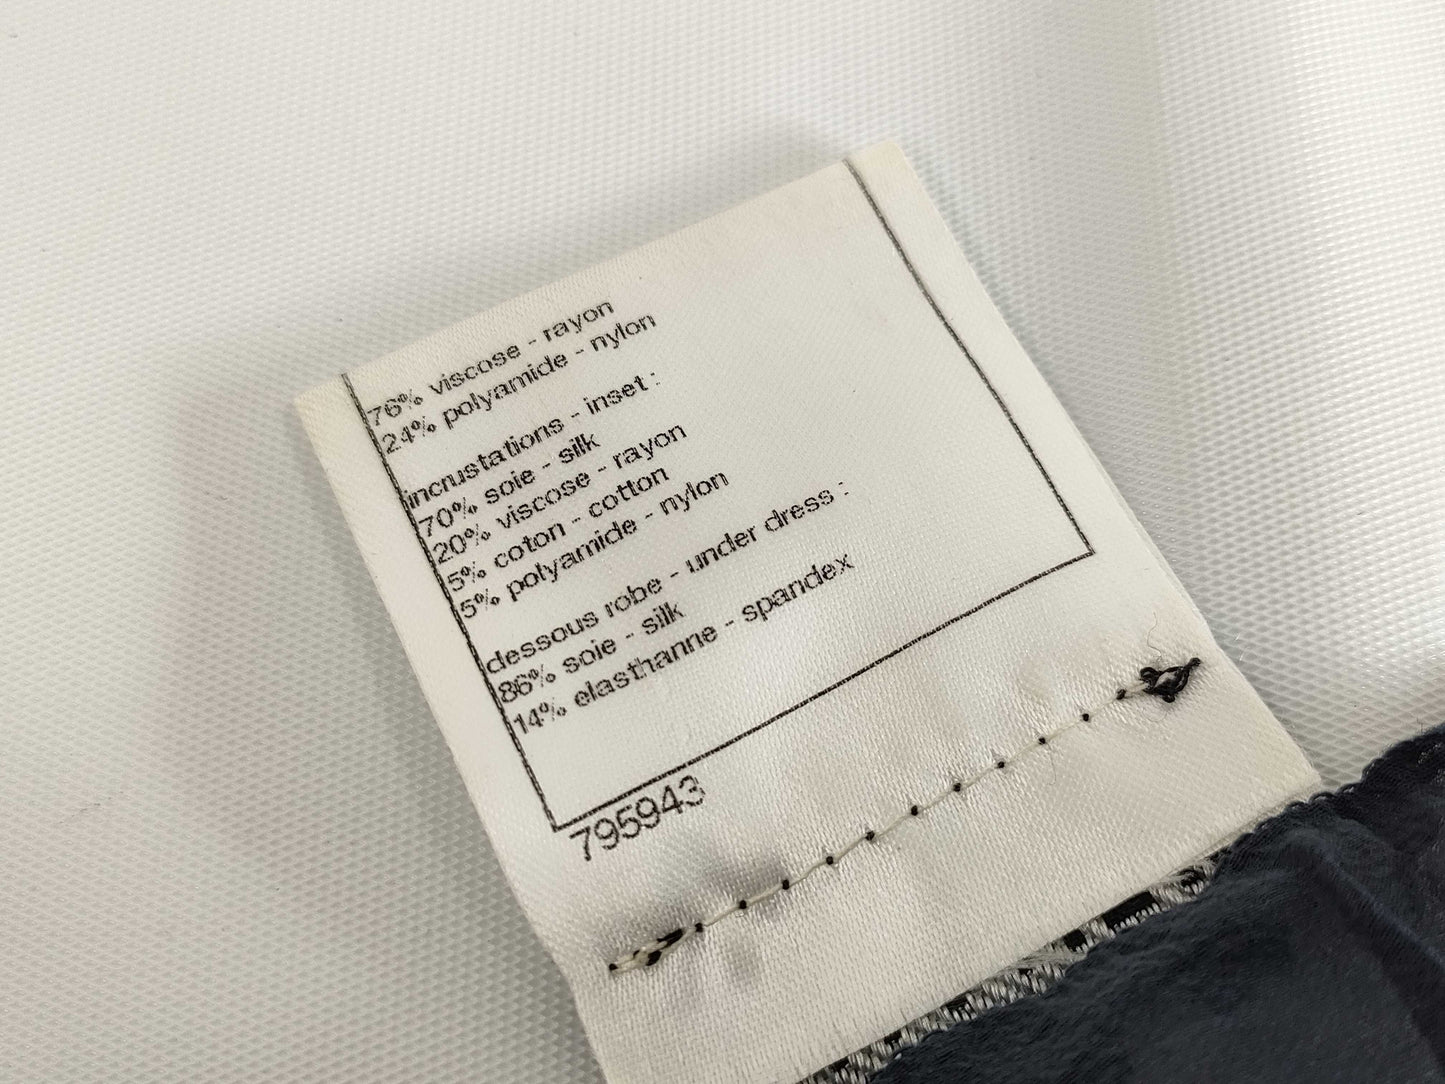 76% viscose - rayon
24% polyamide - nylon
incrustations - inset :
70% soie - silk
20% viscose - rayon
5% coton - cotton
5% polyamide - nylon
dessous robe - under dress :
86% soie - silk
14% elasthanne - spandex
795943